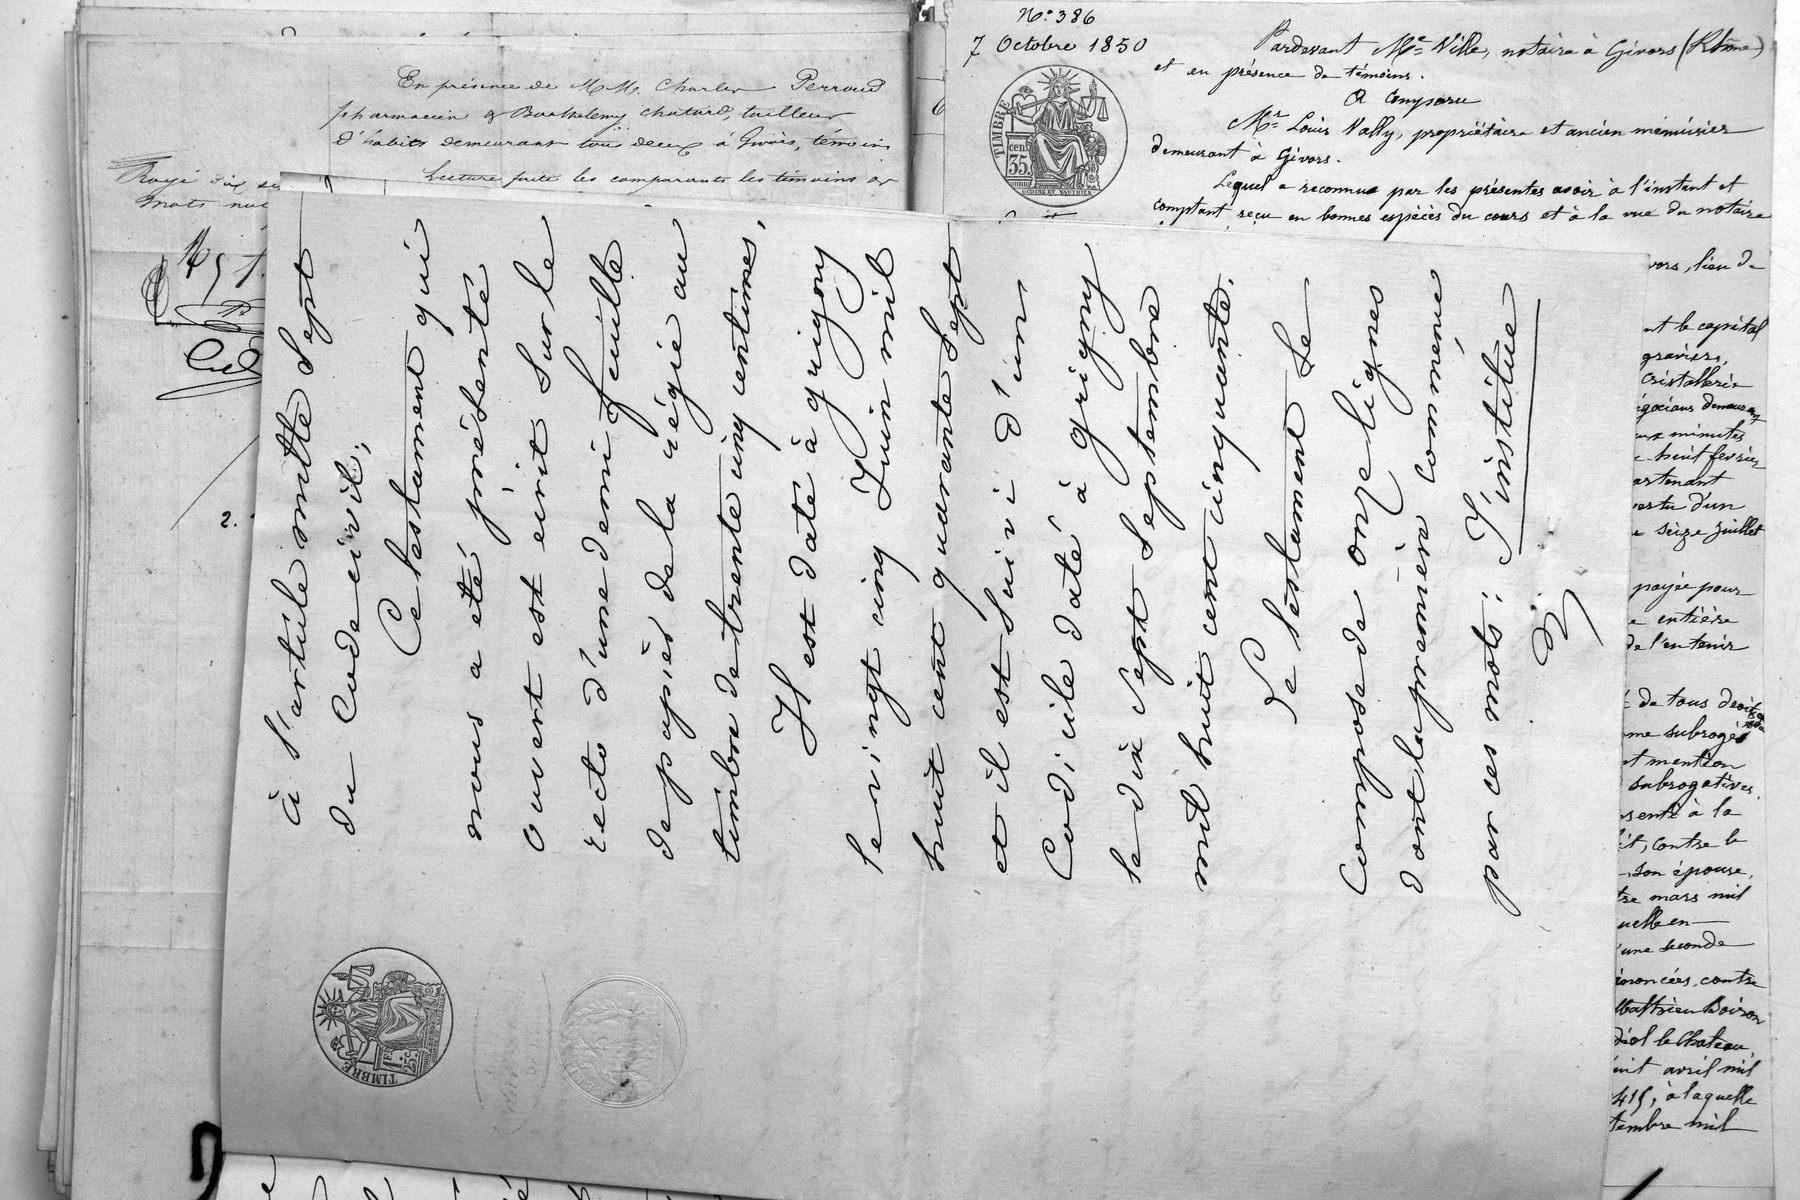 En présence de M.M. Charles Perroud
pharmacien & Barthelemy Chatard, tailleur
d'habits demeurant tous deux à Givors, témoins
Lecture faite les comparants les témoins et
Rayé dix
mots nuls
2.
N.° 386
7 Octobre 1850
TIMBRE
cen.
35.
Pardevant Me. Ville, notaire à Givors (Rhône)
et en présence de témoins.
A Comparu
Mr. Louis Vally, propriétaire et ancien menuisier
demeurant à Givors.
Lequel a reconnu par les présentes avoir à l'instant et
comptant reçu en bonnes espèces du cours et à la vue du notaire
à l'article mille sept
du Code civil;
Ce testament qui
nous a été présenté
ouvert est écrit sur le
recto d'une demi feuille
de papier de la régie au
timbre de trente cinq centimes,
Il est daté à grigny
le vingt cinq Juin mil
huit cent quarante sept
et il est suivi d'un
Codicile daté à grigny
le dix sept septembre
mil huit cent cinquante.
Le testament se
compose de onze lignes
dont la première commence
par ces mots: J'institue
TIMBRE
1F.
25c.
vors, lieu de
nt le capital
graviers,
cristallerie
égocians demeurant
aux minutes
huit février
artenant
vertu d'un
seize juillet
payée pour
entière
de l'entenir
de tous droits
me subrogé
nt mention
subrogatives,
senté à la
it, contre le
son épouse,
tre mars mil
uelle en
une seconde
énoncées, contre
Matthieu Boiron
d'ol le Chateau,
uit avril mil
415, à laquelle
tembre mil